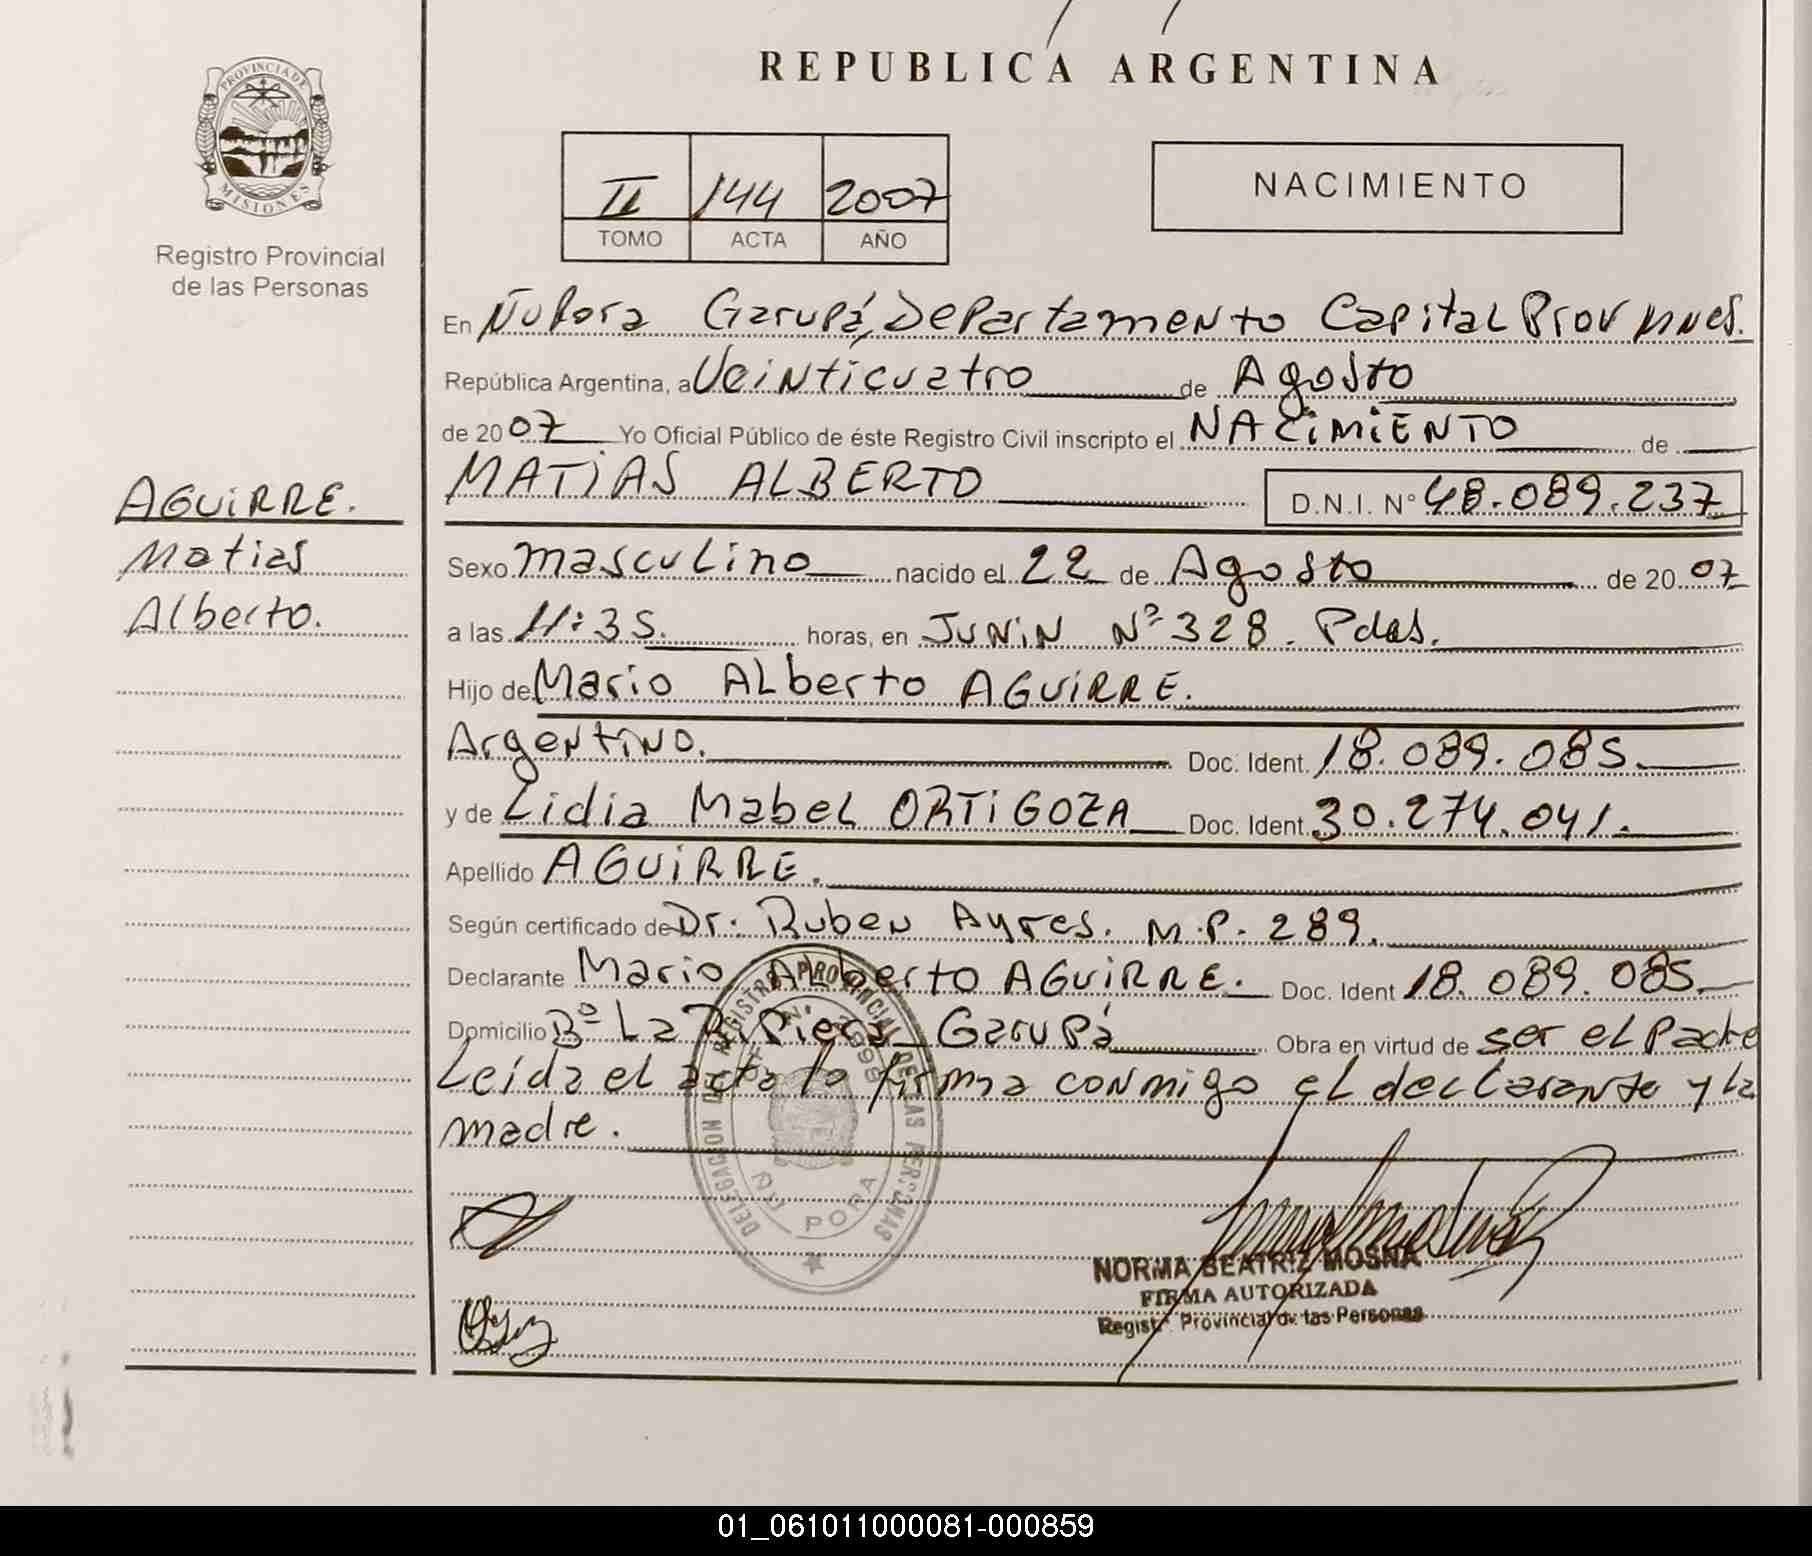 REPUBLICA ARGENTINA
PROVINCIA DE
MISIONES
Registro Provincial
de las Personas
II 144 2007
TOMO ACTA AÑO
NACIMIENTO
En Ñu Pora Garupá, Departamento Capital Prov Mnes.
República Argentina, a Veinticuatro de Agosto
de 2007 Yo Oficial Público de éste Registro Civil inscripto el NACIMIENTO de
MATIAS ALBERTO D.N.I. Nº 48.089.237
AGUIRRE.
Matias
Alberto.
Sexo masculino nacido el 22 de Agosto de 2007
a las 11:35. horas, en JUNIN Nº 328. Pdas.
Hijo de Mario ALberto AGUIRRE.
Argentino. Doc. Ident. 18.089.085.
y de Lidia Mabel ORTIGOZA Doc. Ident. 30.274.041.
Apellido AGUIRRE.
Según certificado de Dr. Ruben Ayres. M.P. 289.
Declarante Mario Alberto AGUIRRE. Doc. Ident 18.089.085.
Domicilio Bº La Garupá Obra en virtud de ser el Padre
Leida el acta la firma conmigo el declarante y la
madre.
DELEGACION DEL REGISTRO PROVINCIAL DE LAS PERSONAS
ÑU PORA
NORMA BEATRIZ MOSNA
FIRMA AUTORIZADA
Regist. Provincial de las Personas
01_061011000081-000859